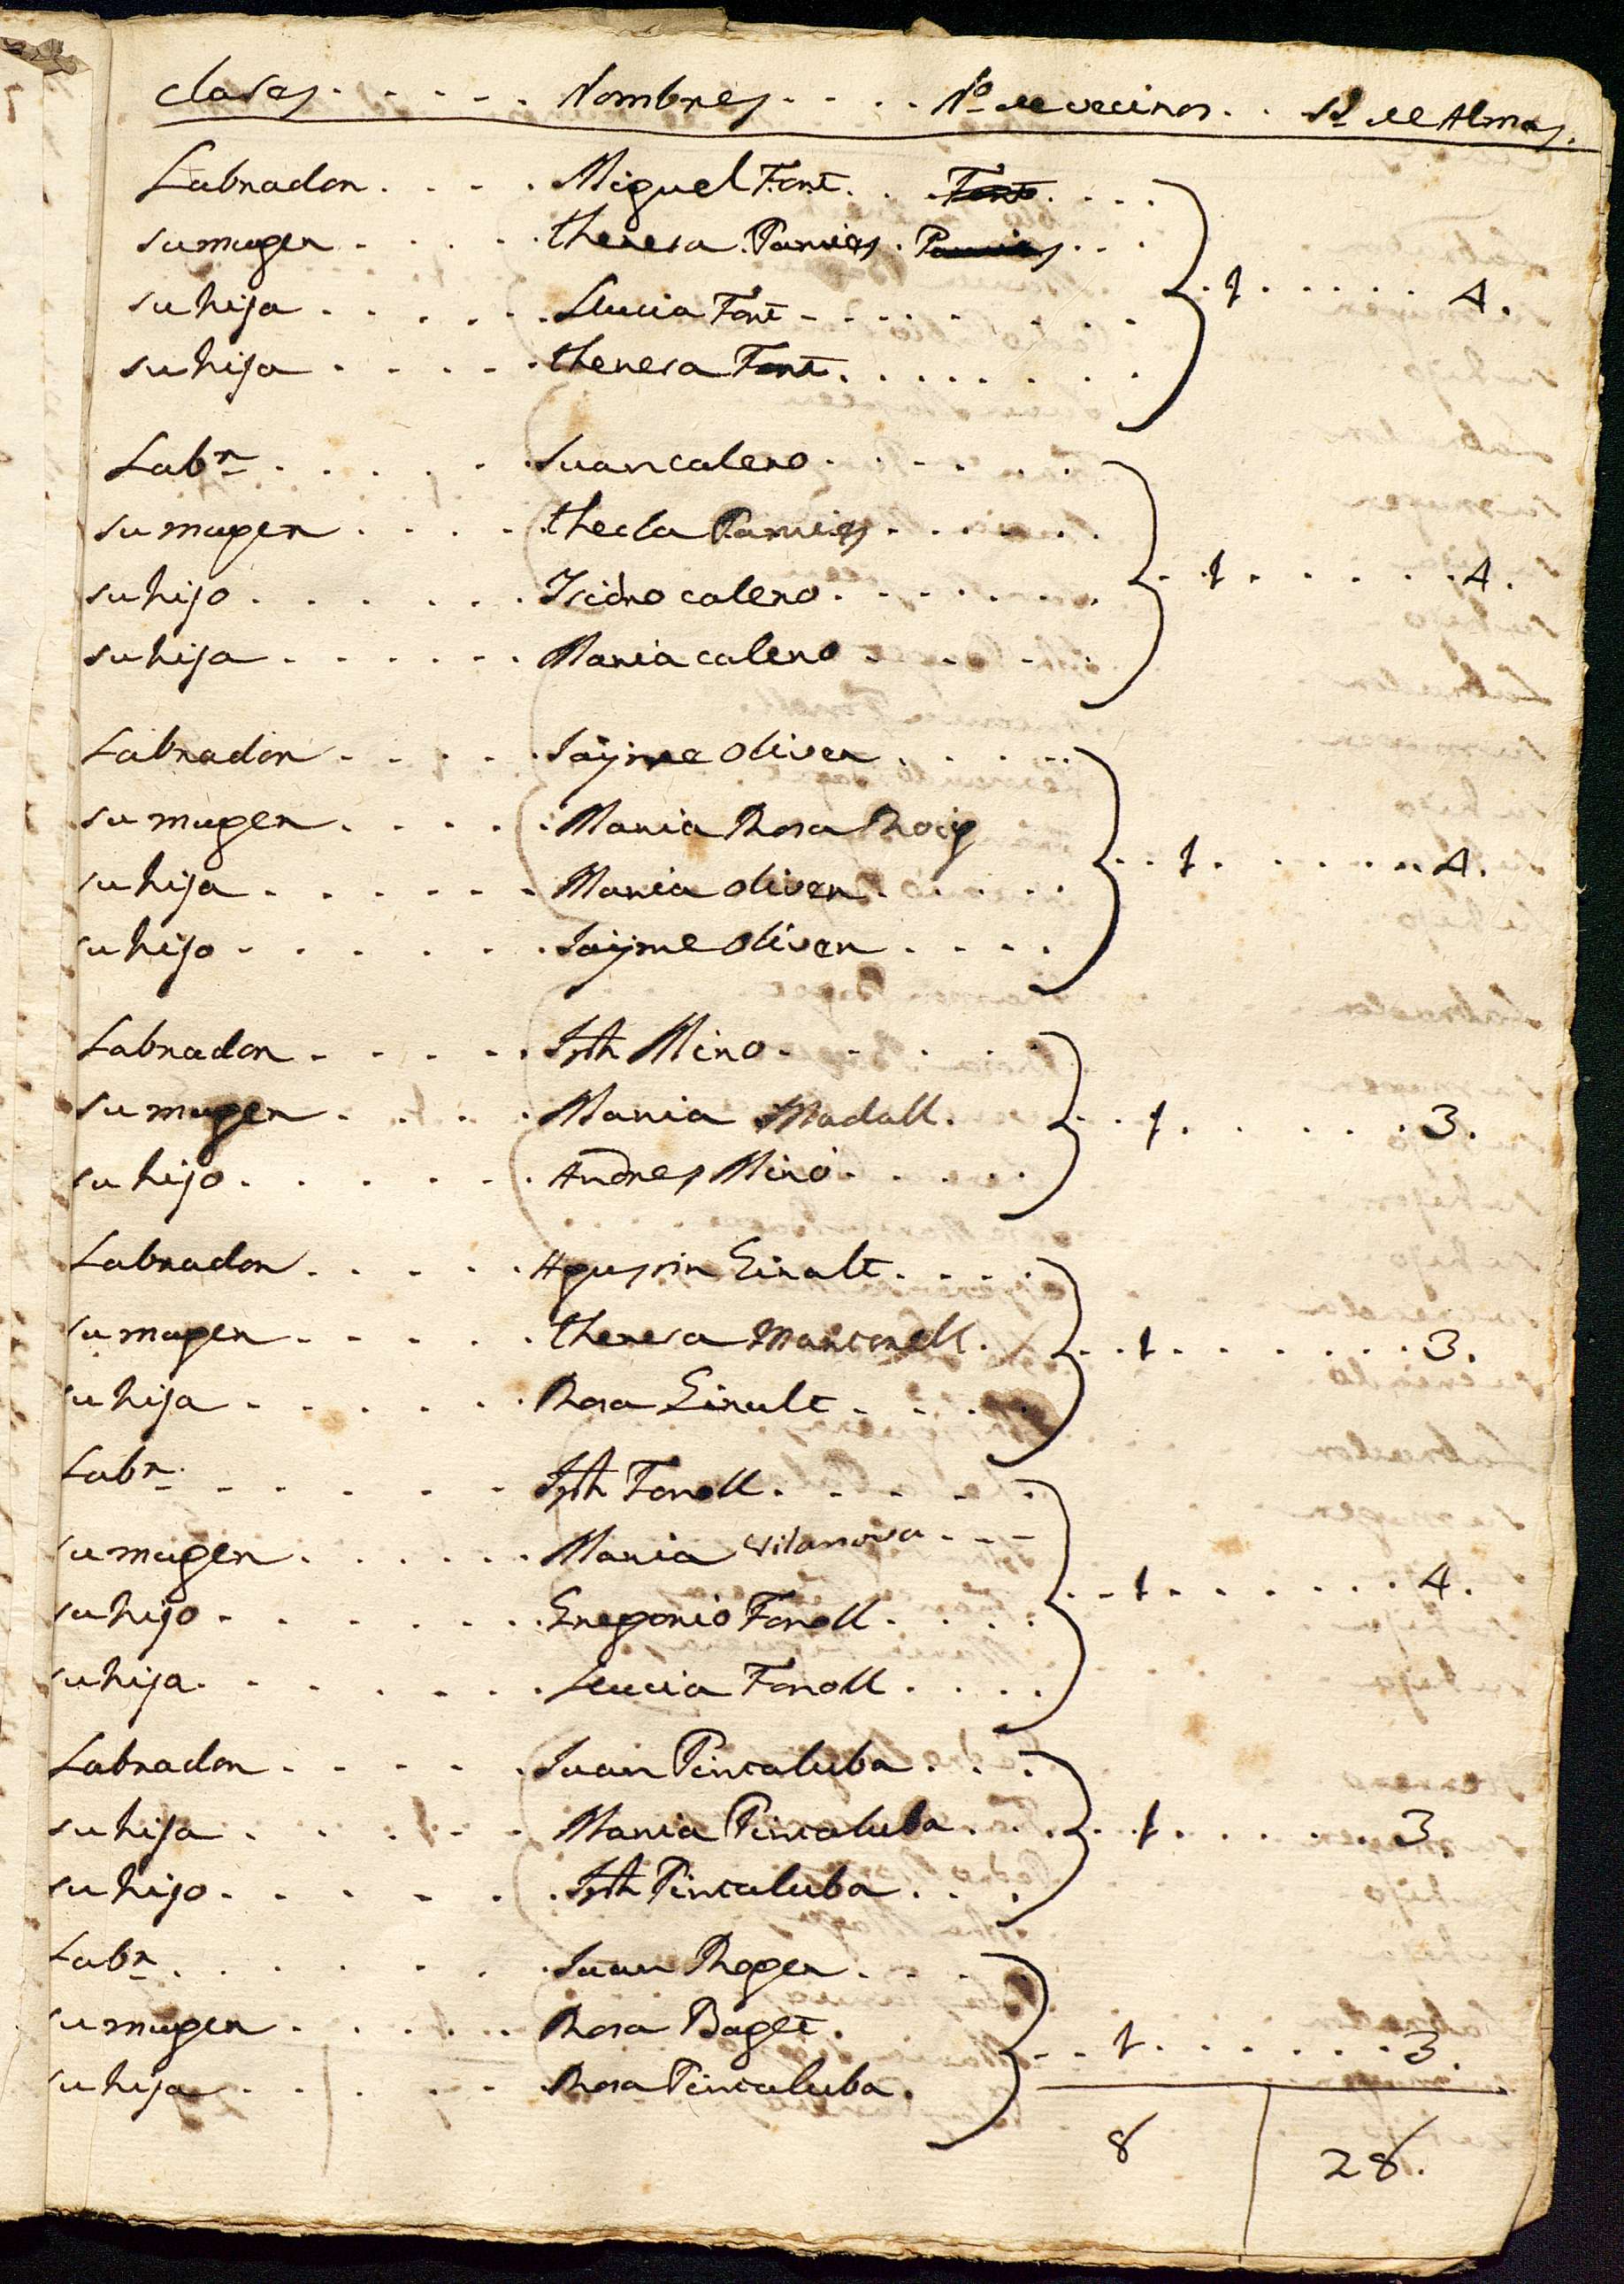 Clases . . . . . Nombres . . . . Nº de vecinos . . Nº de Almas.
Labrador . . . . Miguel Font . . . Font . . . .
su muger . . . . theresa Pamies . Pamies . . .
su hija . . . . . Llucia Font . . . . . . . 1 . . . . . 4.
su hija . . . . . theresa Font . . . . . . . .
Labr . . . . . Juan calero . . . . . . .
su muger . . . . thecla Pamies . . . . . .
su hijo . . . . . . Isidro calero . . . . . . . . 1 . . . . . . 4.
su hija . . . . . . Maria calero . . . . .
Labrador . . . . Jayme oliver . . . . .
su muger . . . . Maria Rosa Roig
su hija . . . . . . Maria oliver . . . . . . 1 . . . . . . 4.
su hijo . . . . . . Jayme oliver . . . .
Labrador . . . . . Jph Miro . . . . . .
su muger . . . . Maria Madall . . . 1 . . . . . . 3.
su hijo . . . . . . Andres Miró . . . . .
Labrador . . . . . Agustin Giralt . . . .
su muger . . . . . theresa Martorell . . . 1 . . . . . . . 3.
su hija . . . . . . Rosa Giralt . . . .
Labr . . . . . . Jph Fonoll . . . . . .
su muger . . . . . . Maria Vilanova . . .
su hijo . . . . . . . Gregorio Fonoll . . . . . . 1 . . . . . . . 4.
su hija . . . . . . . Llucia Fonoll . . . .
Labrador . . . . . Juan Pintaluba . . .
su hija . . . . . . Maria Pintaluba . . . . . 1 . . . . . . 3
su hijo . . . . . . . Jph Pintaluba . . .
Labr . . . . . . . Juan Roger . . .
su muger . . . . . Rosa Baget . . . 1 . . . . . . . 3.
su hija . . . . . Rosa Pintaluba .
8 28.